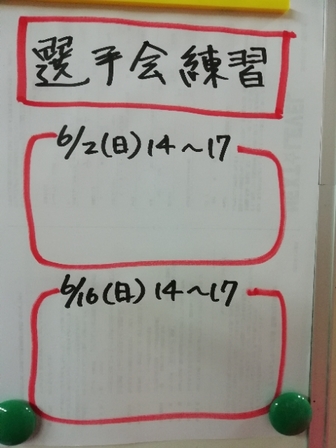 選手会練習
6/2(日)14〜17
6/16(日)14〜17